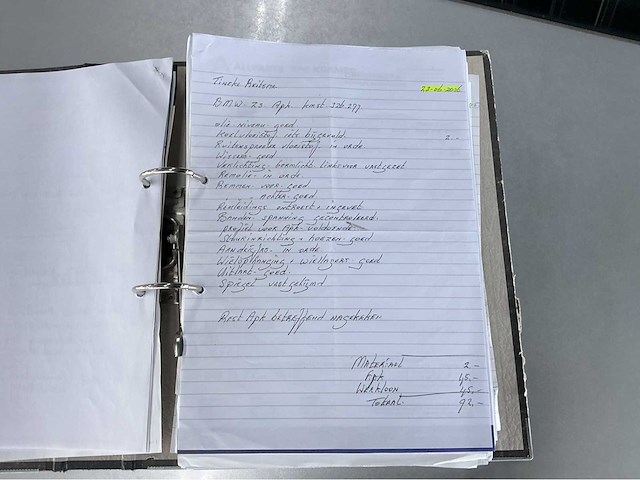 Tineke
23-06-2026
B.M.W. Z3 Apk kmst 326.297
olie niveau goed
Koelvloeistof iets bijgevuld 2.-
Ruitensproeier vloeistof in orde
Wissers goed
Verlichting kenteken linksvoor vastgezet
Remolie in orde
Remmen voor goed
" achter goed
Remleidings ontroest + ingevet
Banden spanning gecontroleerd
profiel voor Apk voldoende
Stuurinrichting + hoezen goed
Aandrijfas in orde
Wielophanging + wiellagers goed
Uitlaat goed
Spiegel vastgelijmd
Rest Apk betreffend nagekeken
Materiaal 2.-
Apk 45.-
Werkloon 45.-
Totaal 92.-